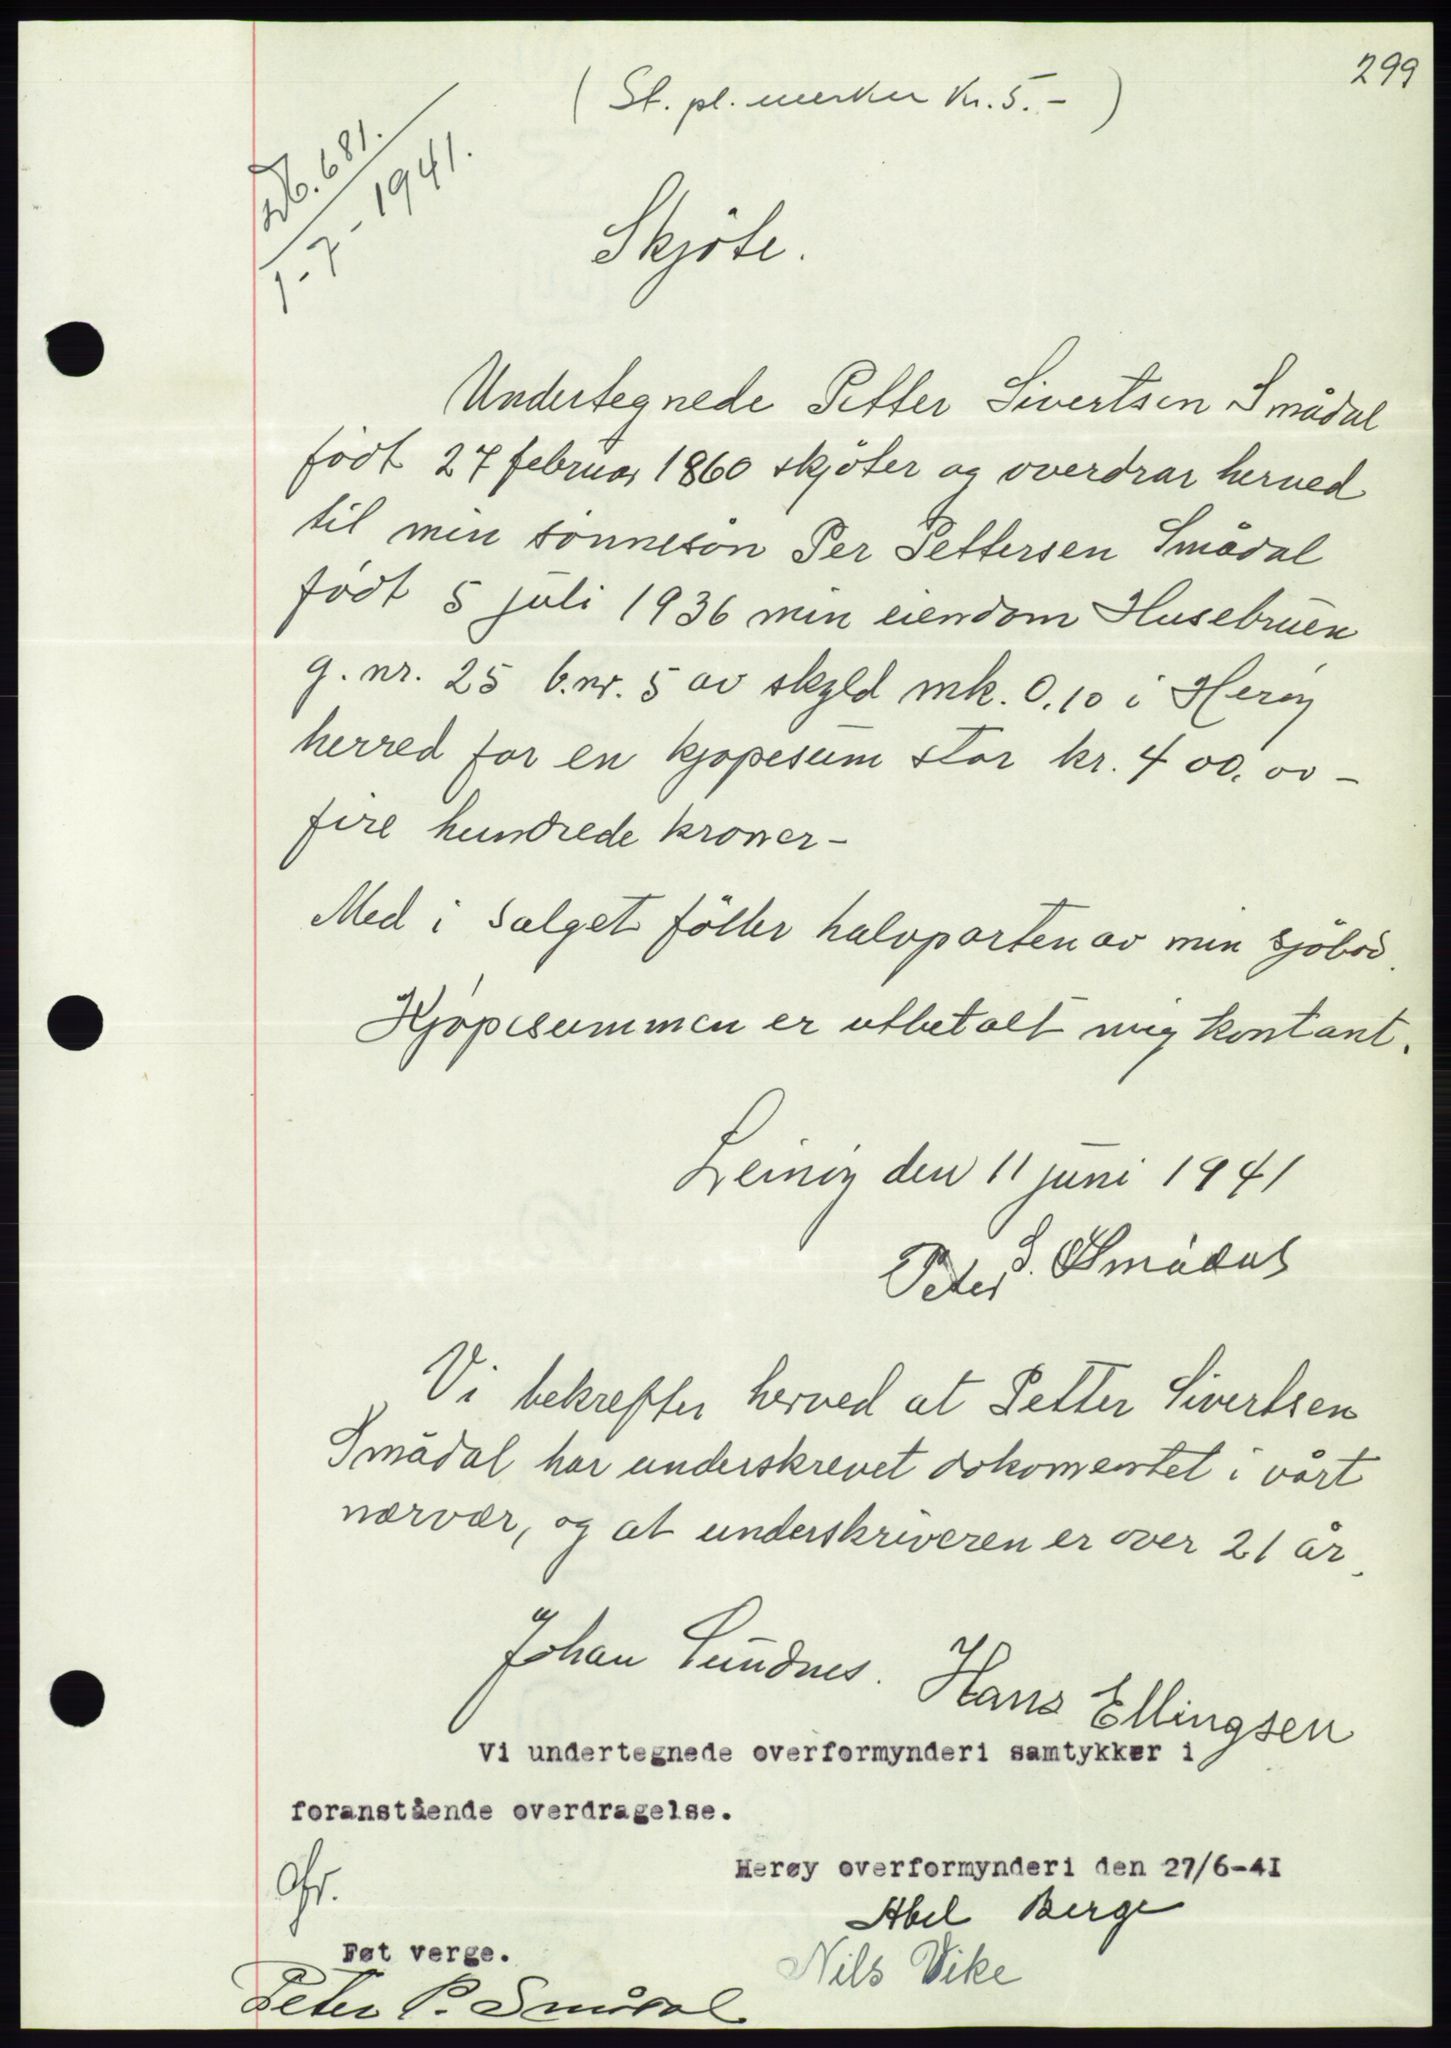 299
( St. pl. merker kr. 5.- )
Db. 681.
1-7-1941.
Skjöte.
Undertegnede Petter Sivertsen Smådal
född 27 februar 1860 skjöter og overdrar herved
til min sönnesön Per Pettersen Smådal
födt 5 juli 1936 min eiendom Husebruen
g. nr. 25 b. nr. 5 av skyld mk. 0,10 i Heröy
herred for en kjøpesum stor kr. 400,00 -
fire hundrede kroner -
Med i salget föller halvparten av min sjöbod.
Kjøpesummen er utbetalt mig kontant.
Leinöy den 11 juni 1941
Peter S. Smådal
Vi bekrefter herved at Petter Sivertsen
Smådal har underskrevet dokomentet i vårt
nærvær, og at underskriveren er over 21 år.
Johan Sundnes. Hans Ellingsen
Vi undertegnede overformynderi samtykker i
foranstående overdragelse.
Herøy overformynderi den 27/6-41
Abel Berge
Nils Vike
Føt verge.
Peter P. Smådal